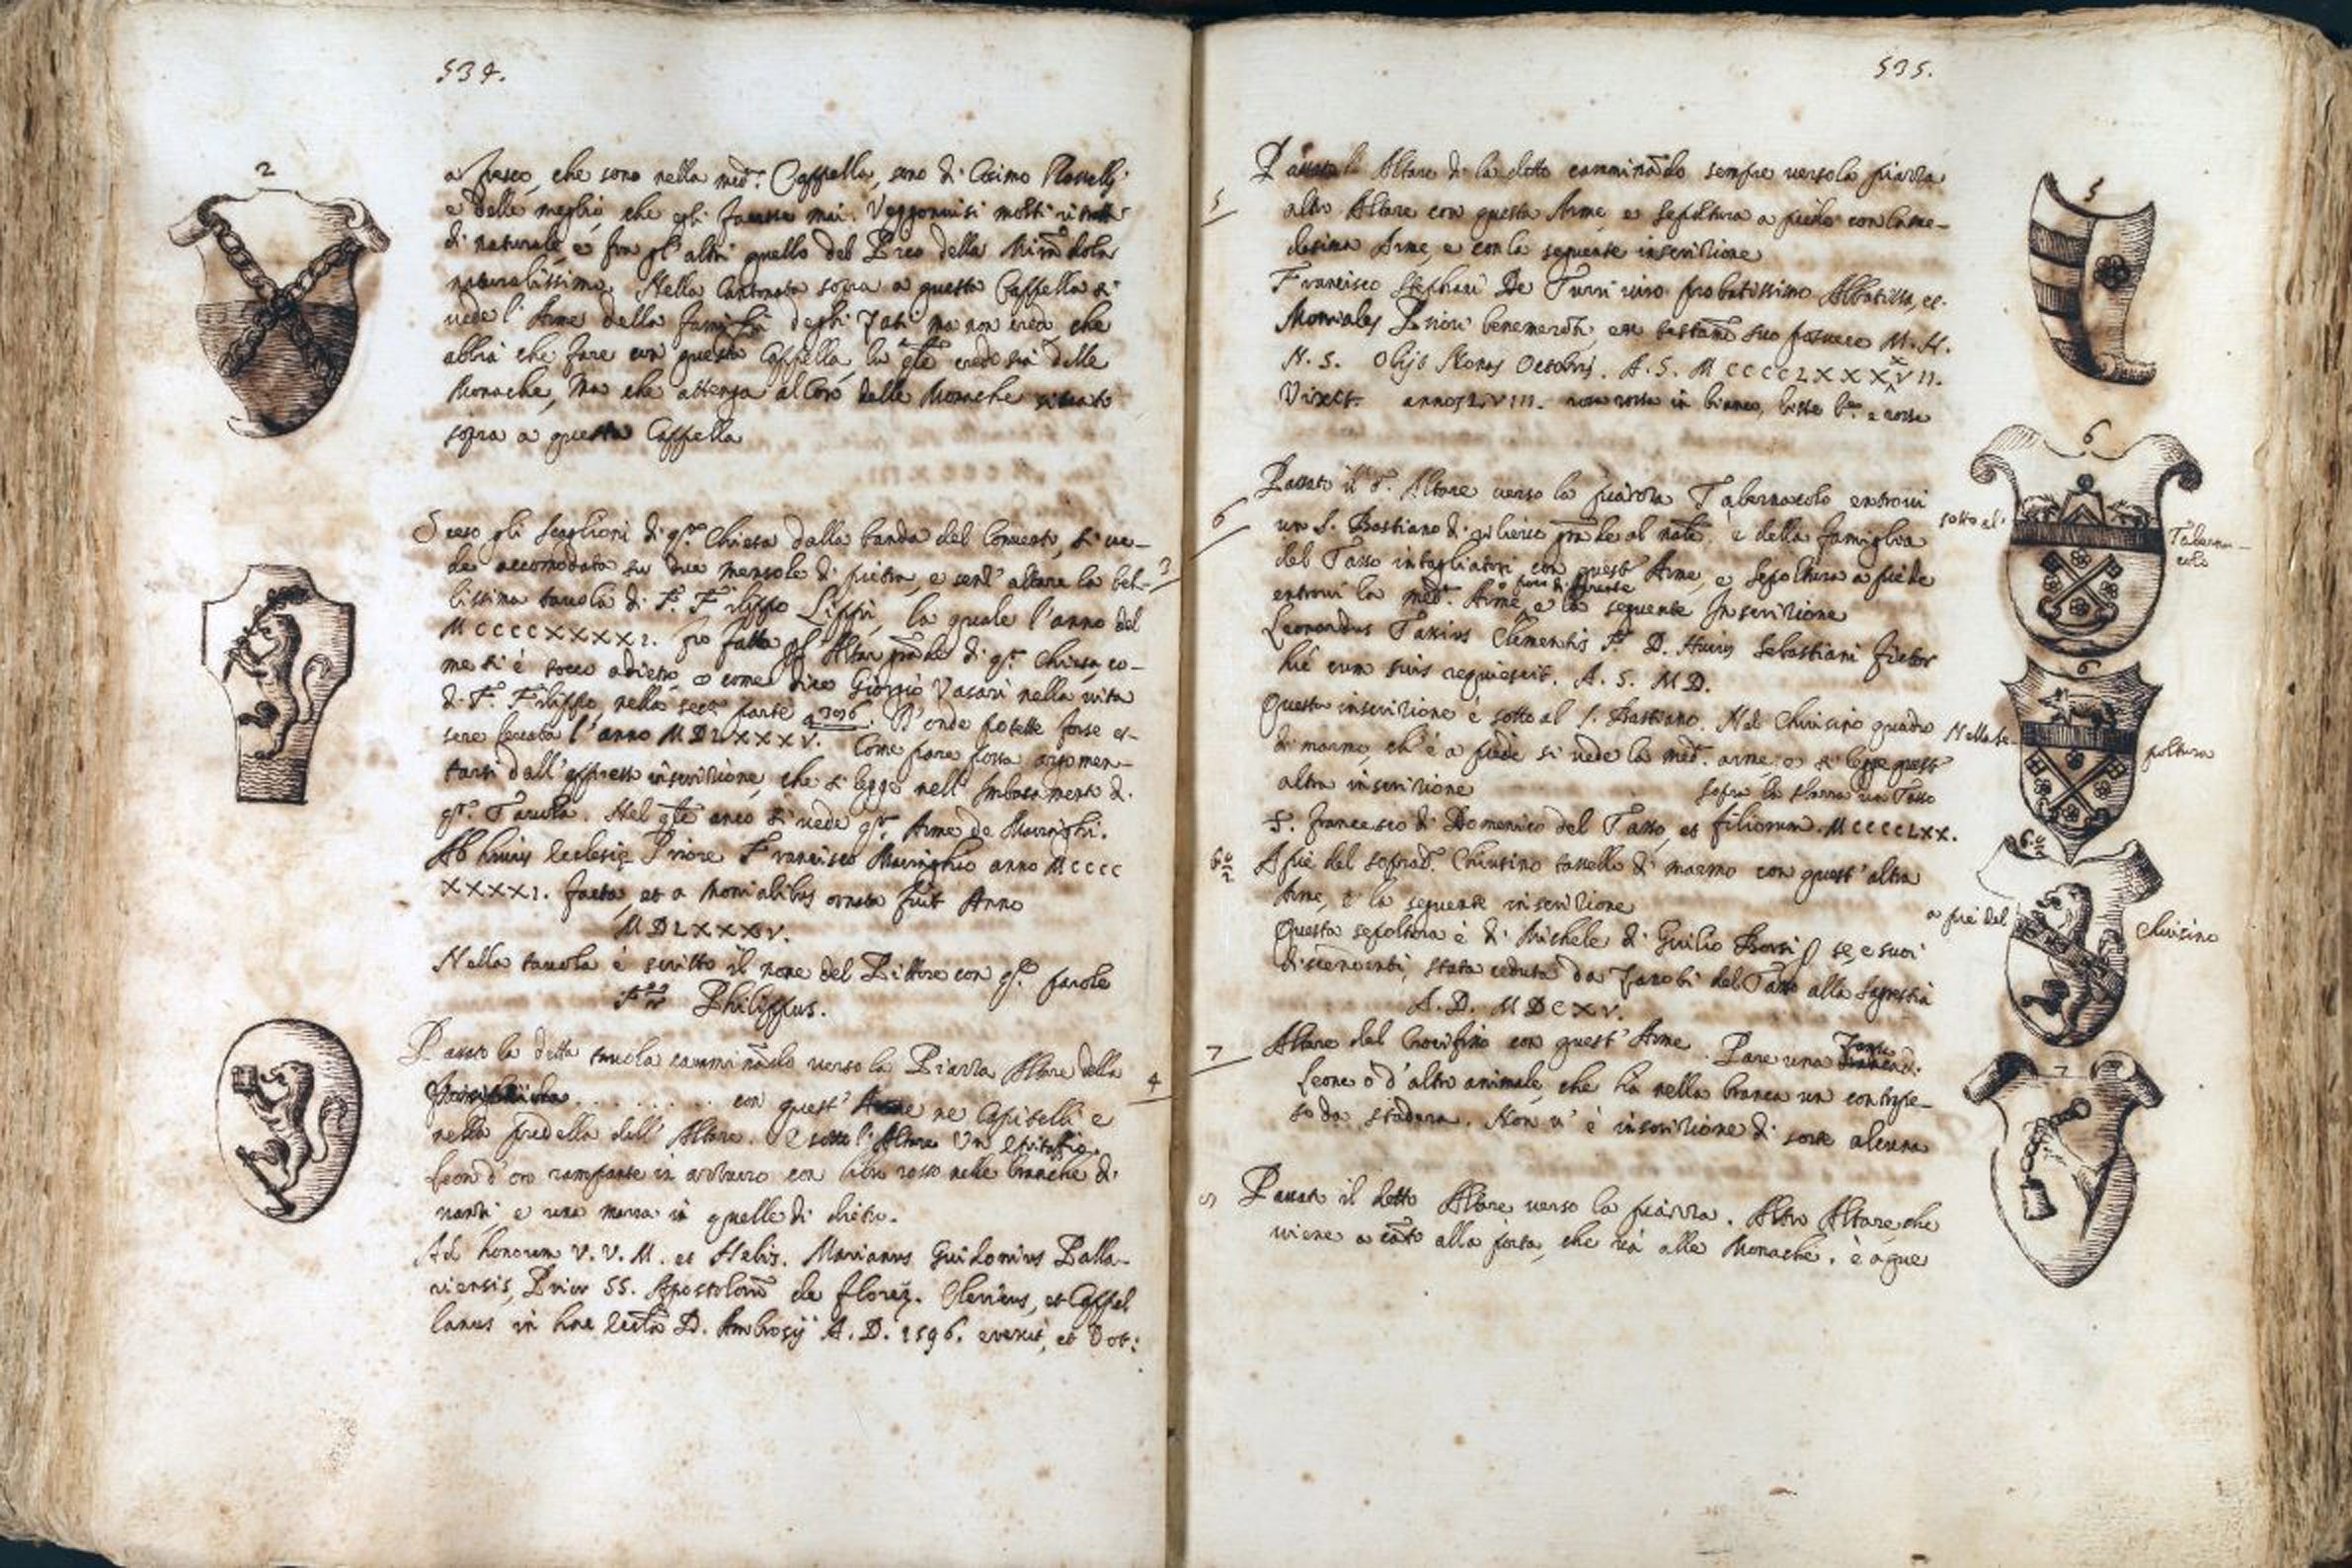 534.
2
a fresco, che sono nella med.ª Cappella, sono di Cosimo Rosselli
e delle meglio che egli facesse mai. Veggonvisi molti ritratti
di naturale, e fra gl'altri quello del Pico della Mirãdola
naturalissimo. Nella Cantonata sopra a questa Cappella si
vede l'Arme della famiglia degli Zati ma non credo che
abbia che fare con questa Cappella, la q̃le credo sia delle
Monache, ma che attenga al Coro delle Monache situato
sopra a questa Cappella
Sceso gli Scaglioni di q.ª Chiesa dalla banda del Convento, si ve-
de accomodata su due mensole di pietra, e senz'altare la bel-
3
lissima tavola di F. Filippo Lippi, la quale l'anno del
MCCCCXXXXI. fu fatta Altar grãde di q.ª Chiesa, co-
me si è tocco adietro, o come dice Giorgio Vasari nella vita
di F. Filippo, nella sec.ª parte 4 3096. D'onde potette forse es-
sere levata l'anno MDLXXXV. Come pare possa argomen-
tarsi dall'appresso inscrizione, che si legge nell'Imbasamento di
q.ª Tavola. Nel q̃le anco si vede q.ª Arme de Maringhi.
Ab huius Ecclesię Priore Francisco Maringhio anno MCCCC
XXXXI. facta, et a Monialibus ornata fuit Anno
MDLXXXV.
Nella tavola è scritto il nome del Pittore con q.e parole
Philippus.
Passato la detta tavola camminãdo verso la Piazza Altare della
4
. . . . . . . con quest'Arme ne Capitelli e
nella predella dell'Altare. E sotto l'Altare Un Epitaffio.
Leon d'oro rampante in azzurro con libro rosso nelle branche di-
nanzi, e una marra in quelle di dietro.
Ad honorem V. V. M. et Helis. Marianus Guidonius Palla-
riensis, Prior SS. Apostolorũ de Florẽ. Clericus, et Cappel
lanus in hac Eccl̃a D. Ambrosij A. D. 1596. erexit, et Dot:
535.
5
Passato l' Altare di la detto camminãdo sempre verso la piazza
5
altro Altare con questa Arme, e Sepoltura a piede con la me-
desima Arme, e con la seguente inscrizione
Francisco Stephani De Turri viro probatissimo Abbatissa, et
Moniales Priori benemerenti, ex testam̃ suo posuere M. H.
N. S. Obijt Nonas Octobris. A. S. MCCCCLXXXXVII.
Vixit annos LVIII. rosa rossa in bianco, liste b.e e rosse
6
Passato il d.º Altare verso la piazza Tabernacolo entrovi
6
sotto al
Taberna-
colo
un S. Bastiano di rilievo grãde al nat̃e. è della famiglia
del Tasso intagliatori, con quest'Arme, e Sepoltura a piede
entrovi la med.ª Arme, e la seguente Inscrizione
Leonardus Taxius Clementis F. D. Huius Sebastiani fictor
hic cum suis requiescit. A. S. MD.
Questa inscrizione è sotto al S. Bastiano. Nel Chiusino quadro
di marmo, ch'è a piede si vede la med.ª arme, e si legge quest'
altra inscrizione
sopra la sbarra un Tasso
6
Nella Se-
poltura
S. Francescho di Domenico del Tasso, et filiorum. MCCCCLXX.
6 ½
A piè del soprad.º Chiusino tassello di marmo con quest'altra
Arme, e la seguente inscrizione
a piè del
Chiusino
Questa sepoltura è di Michele di Giulio Borsi p se, e suoi
discendenti, stata ceduta da Zanobi del Tasso alla Sagrestia
A. D. MDCXV.
7
Altare del Crocifisso con quest'Arme. Pare una Zampa di
Leone o d'altro animale, che hà nella branca un contrape-
so da stadera. Non v'è inscrizione di sorte alcuna
7
Passato il detto Altare verso la piazza. Altro Altare, che
viene a cãto alla porta, che và alle Monache. è aque